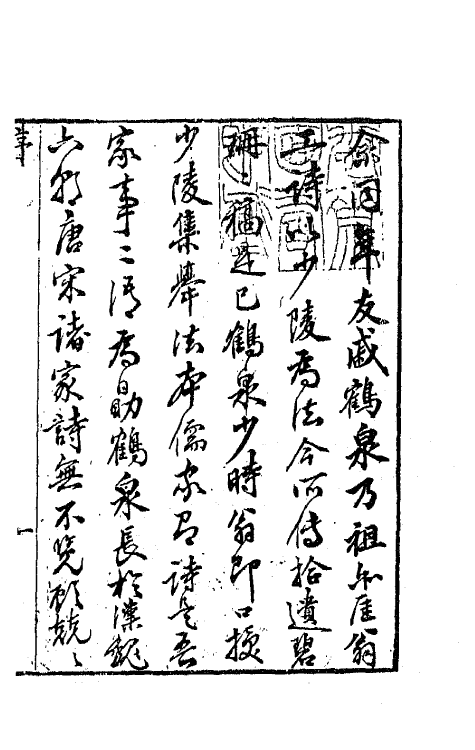 余同年友戚鶴泉乃祖尒厓翁
工詩以少陵為法今所傳拾遺碧
珊二稿是已鶴泉少時翁即口授
少陵集舉法本儒家為詩是吾
家事二語為勖鶴泉長於漢魏
六朝唐宋諸家詩無不覽獨兢兢